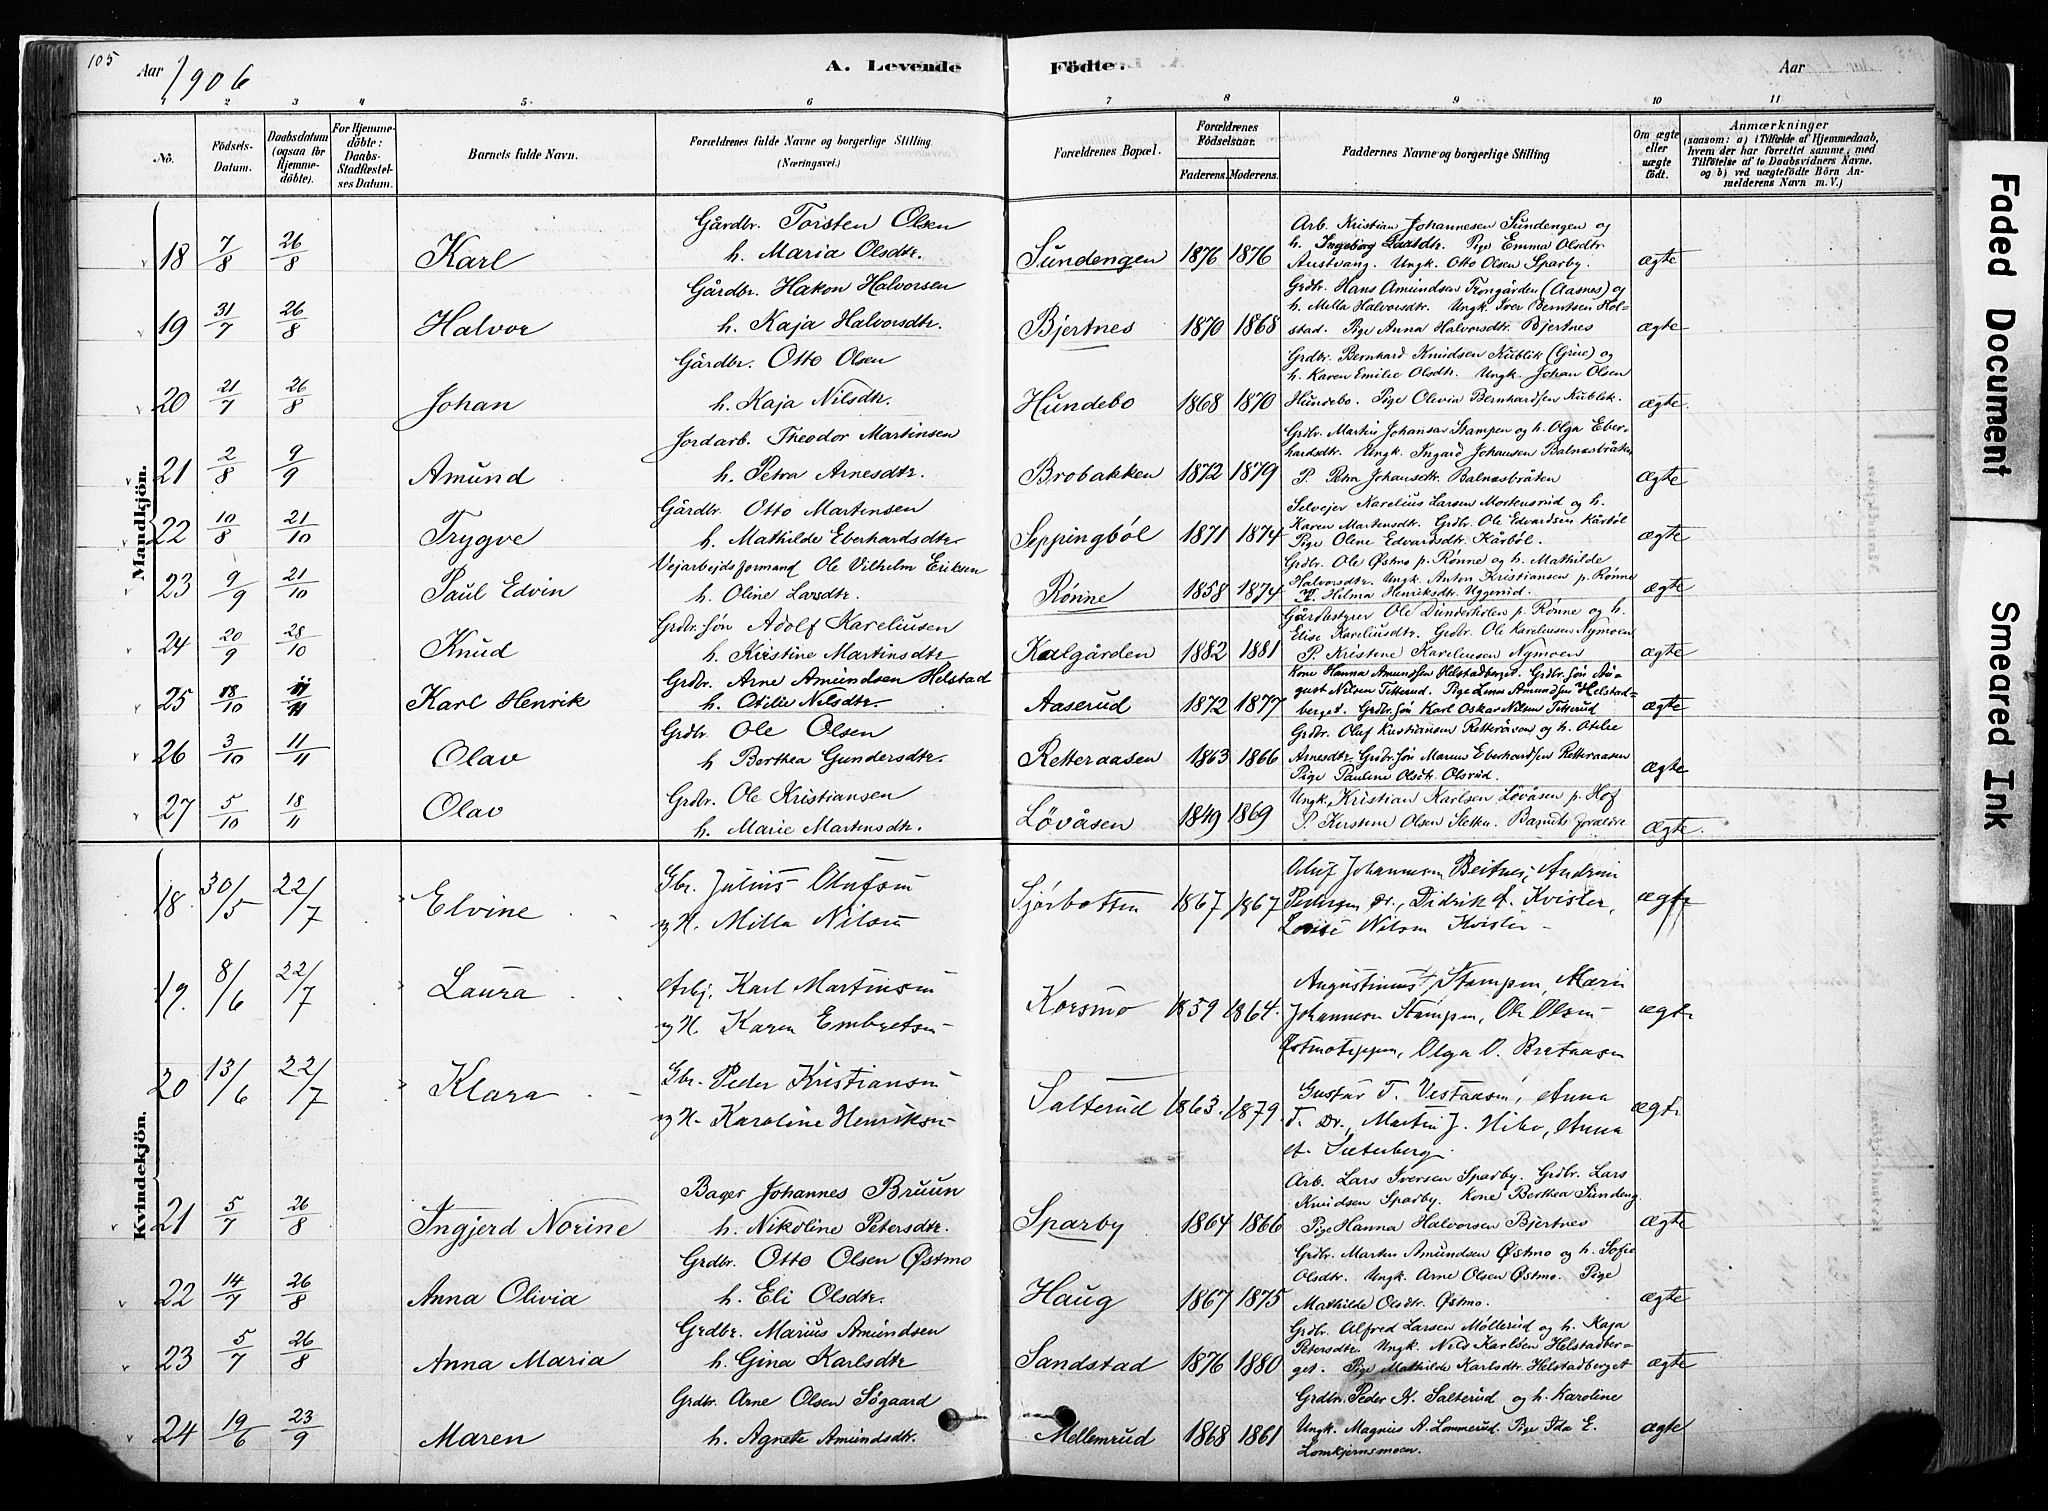 105
Aar 1906
A. Levende
Födte.
Aar
1 2 3 4 5. 6 7 8 9 10 11
No.
Födsels-Datum.
Daabsdatum (ogsaa for Hjemme-döbte).
For Hjemme-döbte: Daabs-Stadfæstel-ses Datum.
Barnets fulde Navn.
Forældrenes fulde Navne og borgerlige Stilling (Næringsvei.)
Forældrenes Bopæl.
Forældrenes Födselsaar.
Faderens. Moderens.
Faddernes Navne og borgerlige Stilling
Om ægte eller uægte födt.
Anmærkninger
(saasom: a) i Tilfælde af Hjemmedaab, hvem der har forrettet samme, med Tilföielse af to Daabsvidners Navne, og b) ved uægtefödte Börn An-melderens Navn m. V.)
Mandkjön.
18 7/8 26/8 Karl Gårdbr. Torsten Olsen
h. Maria Olsdtr. Sundengen 1876 1876 Arb. Kristian Johannesen Sundengen og
h. Ingeborg Larsdtr. Pige Emma Olsdtr.
Austvang. Ungk. Otto Olsen Sparby. ægte
19 31/7 26/8 Halvor Gårdbr. Hakon Halvorsen
h. Kaja Halvorsdtr. Bjertnes 1870 1868 Grdbr. Hans Amundsen Trongården (Aasnes) og
h. Milla Halvorsdtr. Ungk. Iver Berntsen Hol-
stad. Pige Anna Halvorsdtr. Bjertnes ægte
20 21/7 26/8 Johan Gårdbr. Otto Olsen
h. Kaja Nilsdtr. Hundebo 1868 1870 Grdbr. Bernhard Knudsen Kublik (Grue) og
h. Karen Emilie Olsdtr. Ungk. Johan Olsen
Hundebo. Pige Olivia Bernhardsen Kublik. ægte.
21 2/8 9/9 Amund Jordarb. Theodor Martinsen
h. Petra Arnesdtr. Brobakken 1872 1879 Grdbr. Martin Johansen Stampen og h. Olga Eber-
hardsdtr. Ungk. Ingard Johansen Balnesbråten
P. Petra Johansdtr. Balnesbråten ægte
22 10/8 21/10 Trygve Gårdbr. Otto Martinsen
h. Mathilde Eberhardsdtr. Seppingböl 1871 1874 Selvejer Karelius Larsen Mortensrud og h.
Karen Martensdtr. Grdbr. Ole Edvardsen Kårböl
Pige Oline Edvardsdtr. Kårböl. ægte
23 9/9 21/10 Paul Edvin Vejarbejdsformand Ole Vilhelm Eriksen
h. Oline Larsdtr. Rønne 1858 1874 Grdbr. Ole Østmo p. Rønne og h. Mathilde
Halvorsdtr. Ungk. Anton Kristiansen p. Rønne
P. Helma Henriksdtr. Uggerud. ægte
24 20/9 28/10 Knud Grdbr.søn Adolf Kareliusen
h. Kristine Martinsdtr. Kalgården 1882 1881 Gårdbestyrer Ole Dunderholen p. Rønne og h.
Elise Kareliusdtr. Grdbr. Ole Kareliusen Nymoen
P. Kristine Kareliusen Nymoen ægte
25 18/10 11/11 Karl Henrik Grdbr. Arne Amundsen Helstad
h. Otilie Nilsdtr. Aaserud 1872 1877 Kone Hanna Amundsen Helstadberget. Grdbr.søn Au-
gust Nilsen Titterud. Pige Lina Amundsen Helstad-
berget. Grdbr.søn Karl Oskar Nilsen Titterud ægte
26 3/10 11/11 Olav Grdbr. Ole Olsen
h. Berthea Gundersdtr. Retteraasen 1863 1866 Grdbr. Oluf Kristiansen Retteråsen og h. Otelie
Arnesdtr. Grdbr.søn Marius Eberhardsen Retteraasen
Pige Pauline Olsdtr. Olsrud. ægte
27 5/10 18/11 Olav Grdbr. Ole Kristiansen
h. Marie Martensdtr. Lövåsen 1849 1869 Ungk. Kristian Karlsen Lövåsen p. Hof
P. Kirstine Olsen Sletta. Barnets forældre ægte.
Kvindekjön.
18. 30/5 22/7 Elvine Gbr. Julius Olufsen
og H. Milla Nilsen Sjørbotten 1867 1867 Oluf Johannesen Beitnes, Andrine
Pedersen Dr., Didrik A. Kvisler,
Lovise Nilsen Kvisler ægte
19. 8/6 22/7 Laura Arbj. Karl Martinsen
og H. Karen Embretsen Korsmo 1859 1864. Augustinus Stampen, Marie
Johannesen Stampen, Ole Olsen
Østmoteppen, Olga O. Brataasen ægte
20 13/6 22/7 Klara Gbr. Peder Kristiansen
og H. Karoline Henriksen Salterud 1863. 1879. Gustav T. Vestaasen, Anna
T. Dr., Martin J. Hibo, Anna
A. Sæterberg. ægte
21 5/7 26/8 Ingjerd Norine Bager Johannes Bruun
h. Nikoline Petersdtr. Sparby 1864 1866 Arb. Lars Iversen Sparby. Grdbr. Lars
Knudsen Sparby. Kone Berthea Sundeng
Pige Hanna Halvorsen Bjertnes ægte
22 14/7 26/8 Anna Olivia Grdbr. Otto Olsen Østmo
h. Eli Olsdtr. Haug 1867 1875 Grdbr. Martin Amundsen Østmo og h. Sofie
Olsdtr. Ungk. Arne Olsen Østmo. Pige
Mathilde Olsdtr. Østmo. ægte
23 5/7 26/8 Anna Maria Grdbr. Marius Amundsen
h. Gina Karlsdtr. Sandstad 1876 1880 Grdbr. Alfred Larsen Møllerud og h. Kaja
Petersdtr. Ungk. Nils Karlsen Helstadber-
get. Pige Mathilde Karlsdtr. Helstadberget ægte
24 19/6 23/9 Maren Grdbr. Arne Olsen Sögaard
h. Agnete Amundsdtr. Mellemrud 1868 1861 Grdbr. Peder K. Salterud og h. Karoline
Ungk. Magnus A. Lommerud. Pige Ida E.
Lomkjernsmoen. ægte
Faded Document
Smeared Ink